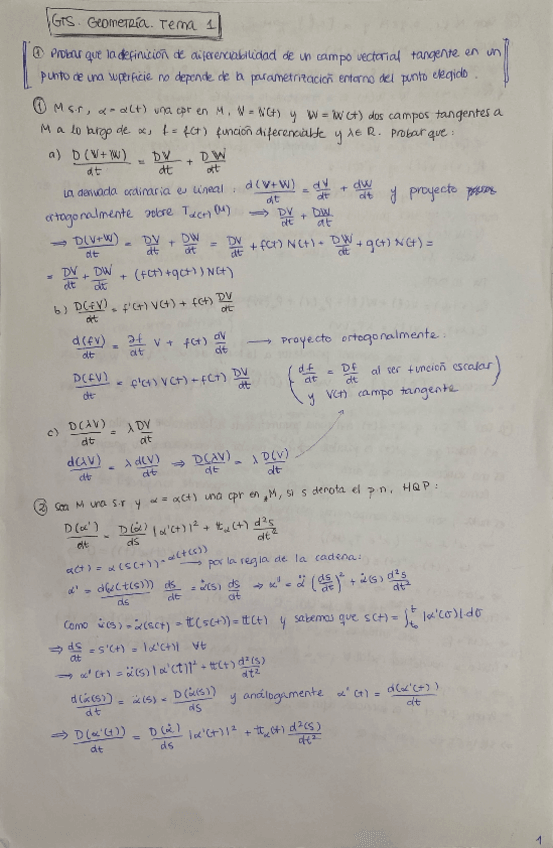 GTS. Geometría. Tema 1
① Probar que la definición de diferenciabilidad de un campo vectorial tangente en un
punto de una superficie no depende de la parametrización entorno del punto elegido.
① M s.r, α = α(t) una cpr en M, V = V(t) y W = W(t) dos campos tangentes a
M a lo largo de α, f = f(t) función diferenciable y λ∈R. Probar que:
a) D(V+W)/dt = DV/dt + DW/dt
La derivada ordinaria es lineal: d(V+W)/dt = dV/dt + dW/dt y proyecto
ortogonalmente sobre Tα(t)(M) ⟹ DV/dt + DW/dt
⟹ D(V+W)/dt = DV/dt + DW/dt = DV/dt + f(t) N(t) + DW/dt + g(t) N(t) =
= DV/dt + DW/dt + (f(t)+g(t)) N(t)
b) D(fV)/dt = f'(t) V(t) + f(t) DV/dt
d(fV)/dt = ∂f/dt V + f(t) dV/dt ⟶ Proyecto ortogonalmente.
D(fV)/dt = f'(t) V(t) + f(t) DV/dt (df/dt = Df/dt al ser función escalar
y V(t) campo tangente)
c) D(λV)/dt = λ DV/dt
d(λV)/dt = λ d(V)/dt ⟹ D(λV)/dt = λ D(V)/dt
② Sea M una s.r y α = α(t) una cpr en M, si s denota el p n, HQP:
D(α')/dt = D(α̇)/ds |α'(t)|² + 𝕥α(t) d²s/dt²
α(t) = α(s(t)) = α(t(s)) ⟶ por la regla de la cadena:
α' = d(α(t(s)))/ds ds/dt = α̇(s) ds/dt ⟹ α'' = α̈ (ds/dt)² + α̇(s) d²s/dt²
Como α̇(s) = α̇(s(t)) = 𝕥(s(t)) = 𝕥(t) y sabemos que s(t) = ∫ₜ₀ᵗ |α'(σ)| dσ
⟹ ds/dt = s'(t) = |α'(t)| ∀t
⟹ α''(t) = α̈(s) |α'(t)|² + 𝕥(t) d²(s)/dt²
d(α̇(s))/dt = α̈(s) = D(α̇(s))/ds y análogamente α''(t) = d(α'(t))/dt
⟹ D(α'(t))/dt = D(α̇)/ds |α'(t)|² + 𝕥α(t) d²(s)/dt²
1